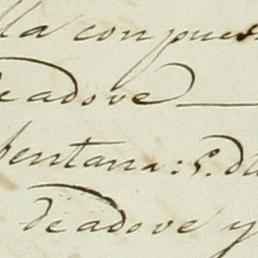 lla con pues
de adove
bentana: S. du
de adove y